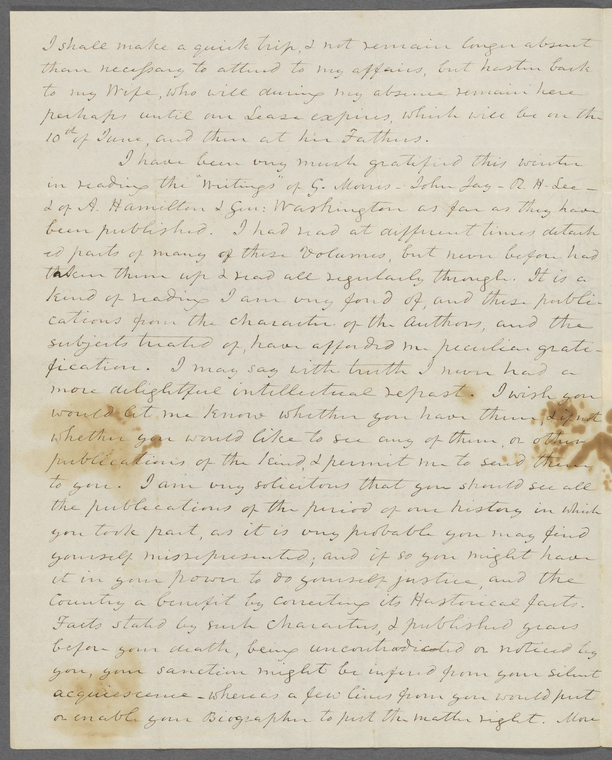 I shall make a quick trip, & not remain longer absent
than necessary to attend to my affairs, but hasten back
to my Wife, who will during my absence remain here
perhaps until our Lease expires, which will be on the
10th of June, and then at her Fathers.
I have been very much gratified this winter
in reading the "Writings" of G. Morris - John Jay - R. H. Lee -
& of A. Hamilton & Gen: Washington as far as they have
been published. I had read at different times detach
ed parts of many of these Volumes, but never before had
taken them up & read all regularly through. It is a
kind of reading I am very fond of, and these publi-
cations from the character of the Authors, and the
subjects treated of, have afforded me peculiar grati-
fication. I may say with truth I never had a
more delightful intellectual repast. I wish you
would let me know whether you have them, & if not
whether you would like to see any of them, or other
publications of the kind, & permit me to send them
to you. I am very solicitous that you should see all
the publications of the period of our history in which
you took part, as it is very probable you may find
yourself misrepresented; and if so you might have
it in your power to do yourself justice, and the
Country a benefit by correcting its Hastorical facts.
Facts stated by such characters, & published years
before your death, being uncontradicted or noticed by
you, your sanction might be inferred from your silent
acquiescence - whereas a few lines from you would put
or enable your Biographer to put the matter right. More